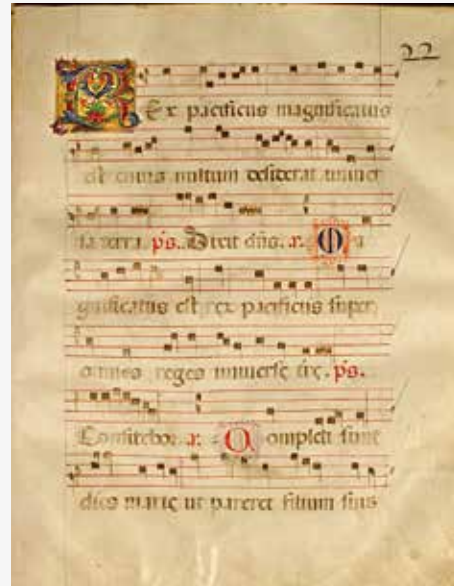 22
Rex pacificus magnificatus
est cuius vultum desiderat univer
sa terra. ps. Dixit dñs. a. Ma
gnificatus est rex pacificus super
omnes reges universe trę. ps.
Confitebor. a. Completi sunt
dies marię ut pareret filium suus